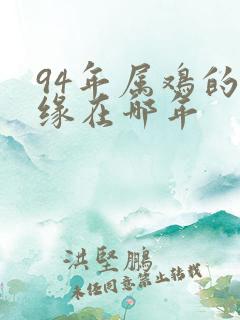 94年属鸡的
缘在哪年
洪坚鹏
未经同意禁止转载